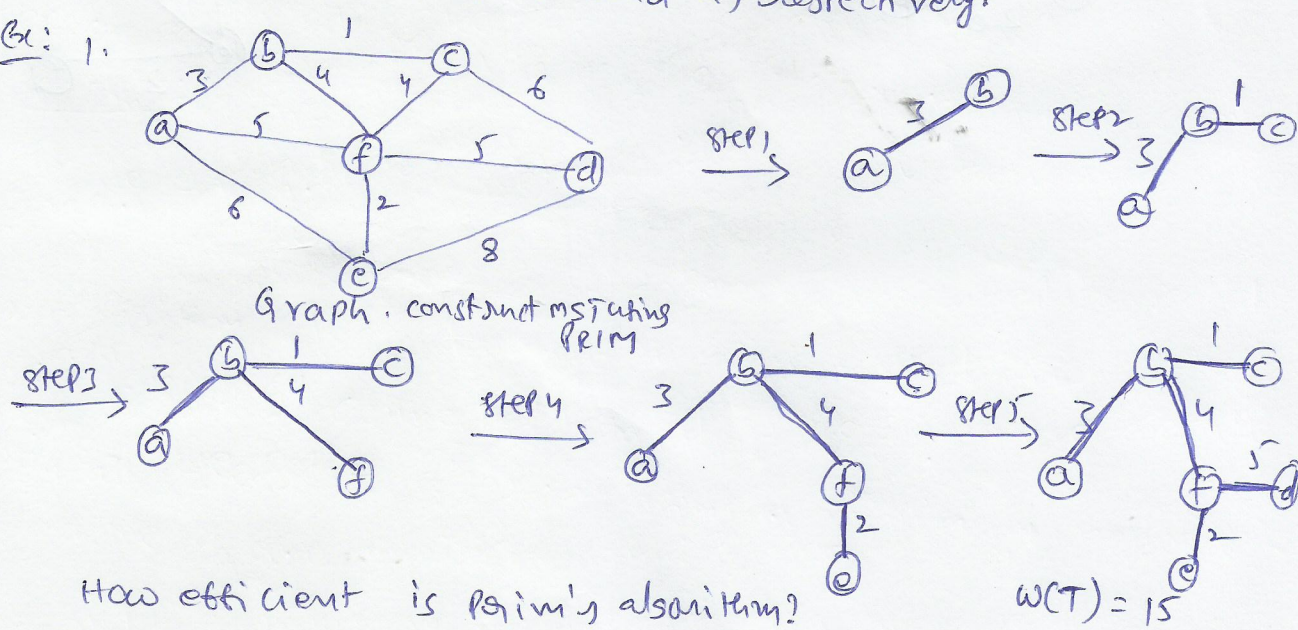 Ex: 1.
b 1 c
3 4 4 6
a 5 f 5 d
6 2 8
e
Graph. construct MST using
PRIM
Step1
a 3 b
Step2
a 3 b 1 c
Step3
a 3 b 1 c
4 f
Step 4
a 3 b 1 c
4 f
2 e
Step5
a 3 b 1 c
4 f 5 d
2 e
How efficient is Prim's algorithm?
W(T) = 15